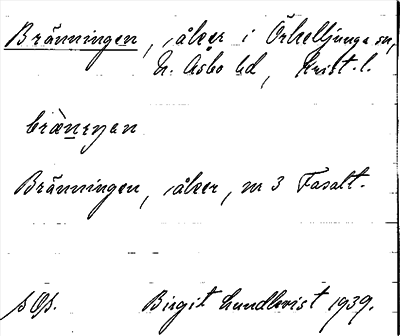 Bränningen, åker i Örkelljunga sn,
N. Åsbo hd, Krist. l.
Bränningen, åker, nr 3 Fasalt.
Birgit Lundkvist 1939.